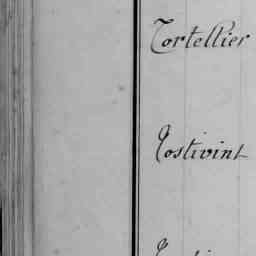 Tortellier
Tostivint